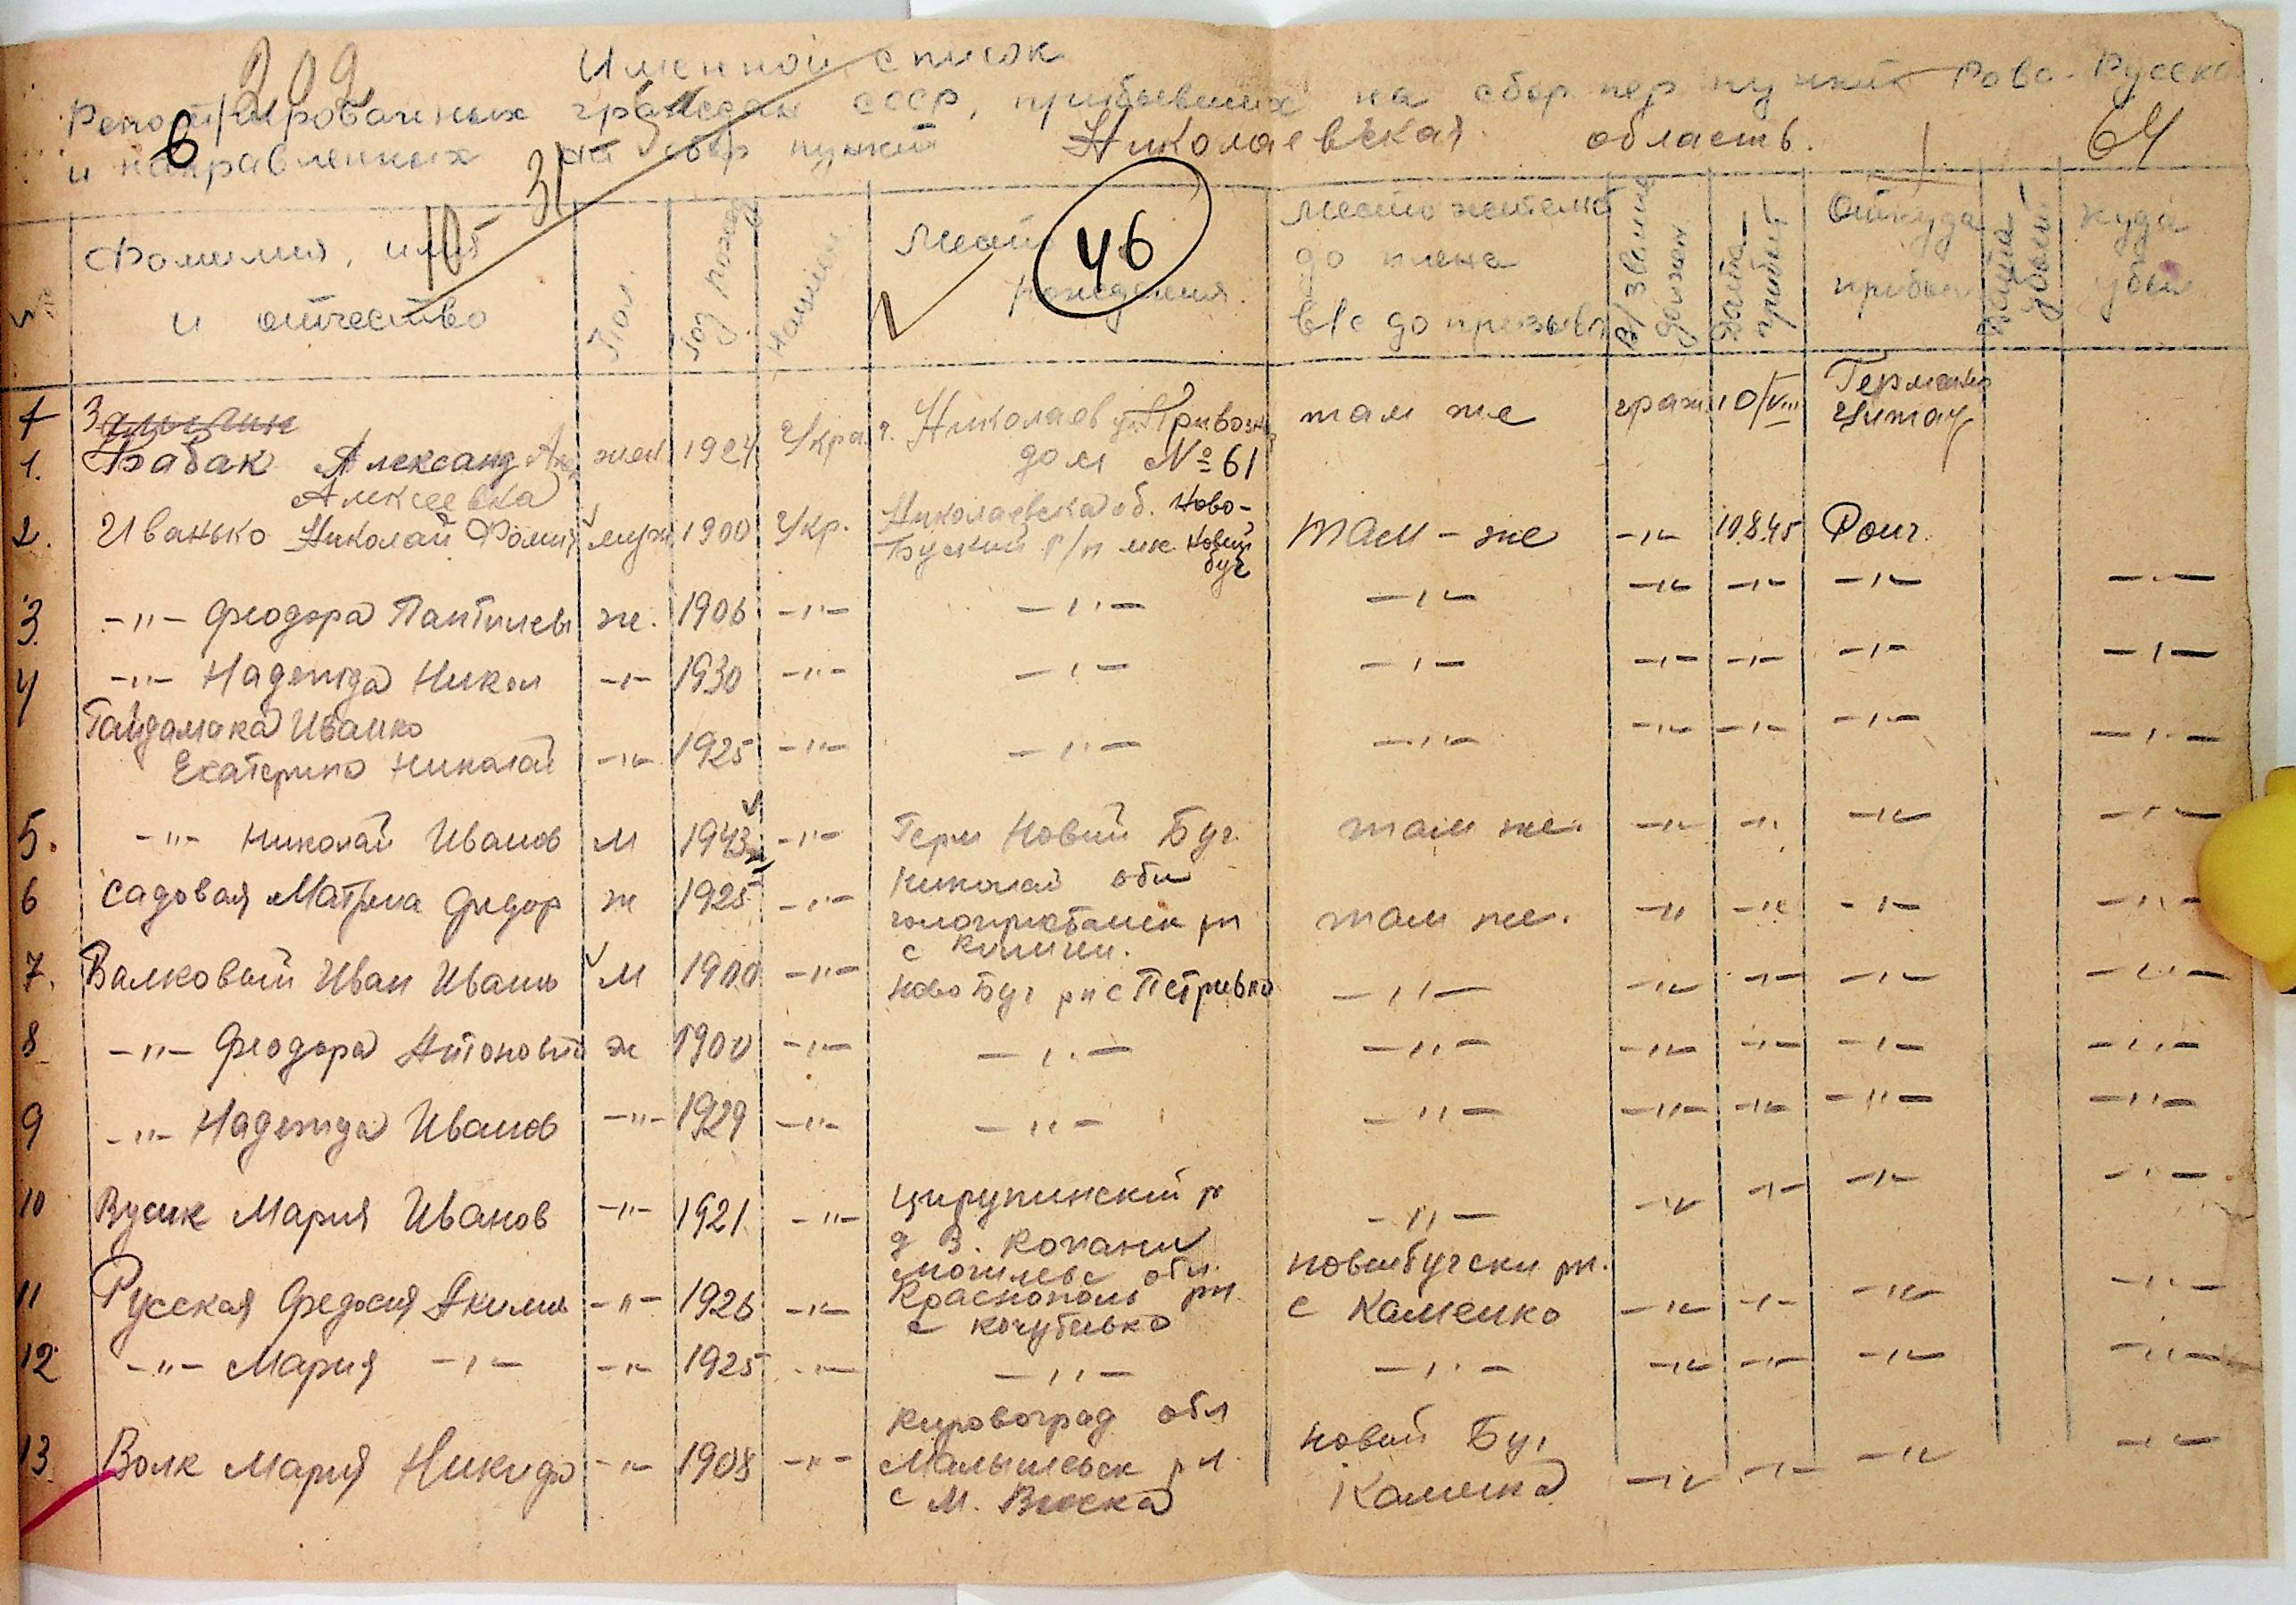 209
Именной список
Репатриированных граждан СССР, прибывших на сбор пер пункт Рава-Русска
и направленных на сбор пункт Николаевская область.
6
64
31
10
46
№
Фамилия, имя и отчество
Пол
Год рожд
Национ
Место рождения
Место жительс до плена в/с до призыва
В/звание должн
Дата прибыт
Откуда прибыл
Дата убыт
Куда убыл
1. Бабак Александ Алексеевка жен 1924 Укра. г. Николаев ул Привозн дом № 61 там же граж. 10/VIII Германи Цитау
2. Иванько Николай Фомич муж 1900 Укр. Николаевска об. Ново-Бугский р/н мс Новый буг там-же -"- 10.8.45 Роиг.
3. -"- Феодора Пантилев ж. 1906 -"- -"- -"- -"- -"- -"- -"-
4 -"- Надежда Никол -"- 1930 -"- -"- -"- -"- -"- -"- -"-
Гайдамака Иванко
Екатерина Николай -"- 1925 -"- -"- -"- -"- -"- -"- -"-
5. -"- Николай Иванов м 1943 -"- Герм Новий Буг там же. -"- -"- -"- -"-
6 Садовая Матрена Федор ж 1925 -"- Николай обл голопристанск рн с там же. -"- -"- -"- -"-
7. Валковый Иван Ивано м 1900 -"- Ново Буг рн с Петривка -"- -"- -"- -"- -"-
8 -"- Феодора Антоновна ж 1900 -"- -"- -"- -"- -"- -"- -"-
9 -"- Надежда Иванов -"- 1929 -"- -"- -"- -"- -"- -"- -"-
10 Вусик Мария Иванов -"- 1921 -"- Цирупинский р д В. Копани -"- -"- -"- -"- -"-
11 Русская Федосия Акимов -"- 1926 -"- могилевс обл. Краснополь рн. с кочубивка новобугски рн. с Каменка -"- -"- -"- -"-
12 -"- Мария -"- -"- 1925 -"- -"- -"- -"- -"- -"- -"-
13 Волк Мария Никидо -"- 1908 -"- Кировоград обл рн. с М. Виска новый Буг Каменка -"- -"- -"- -"-